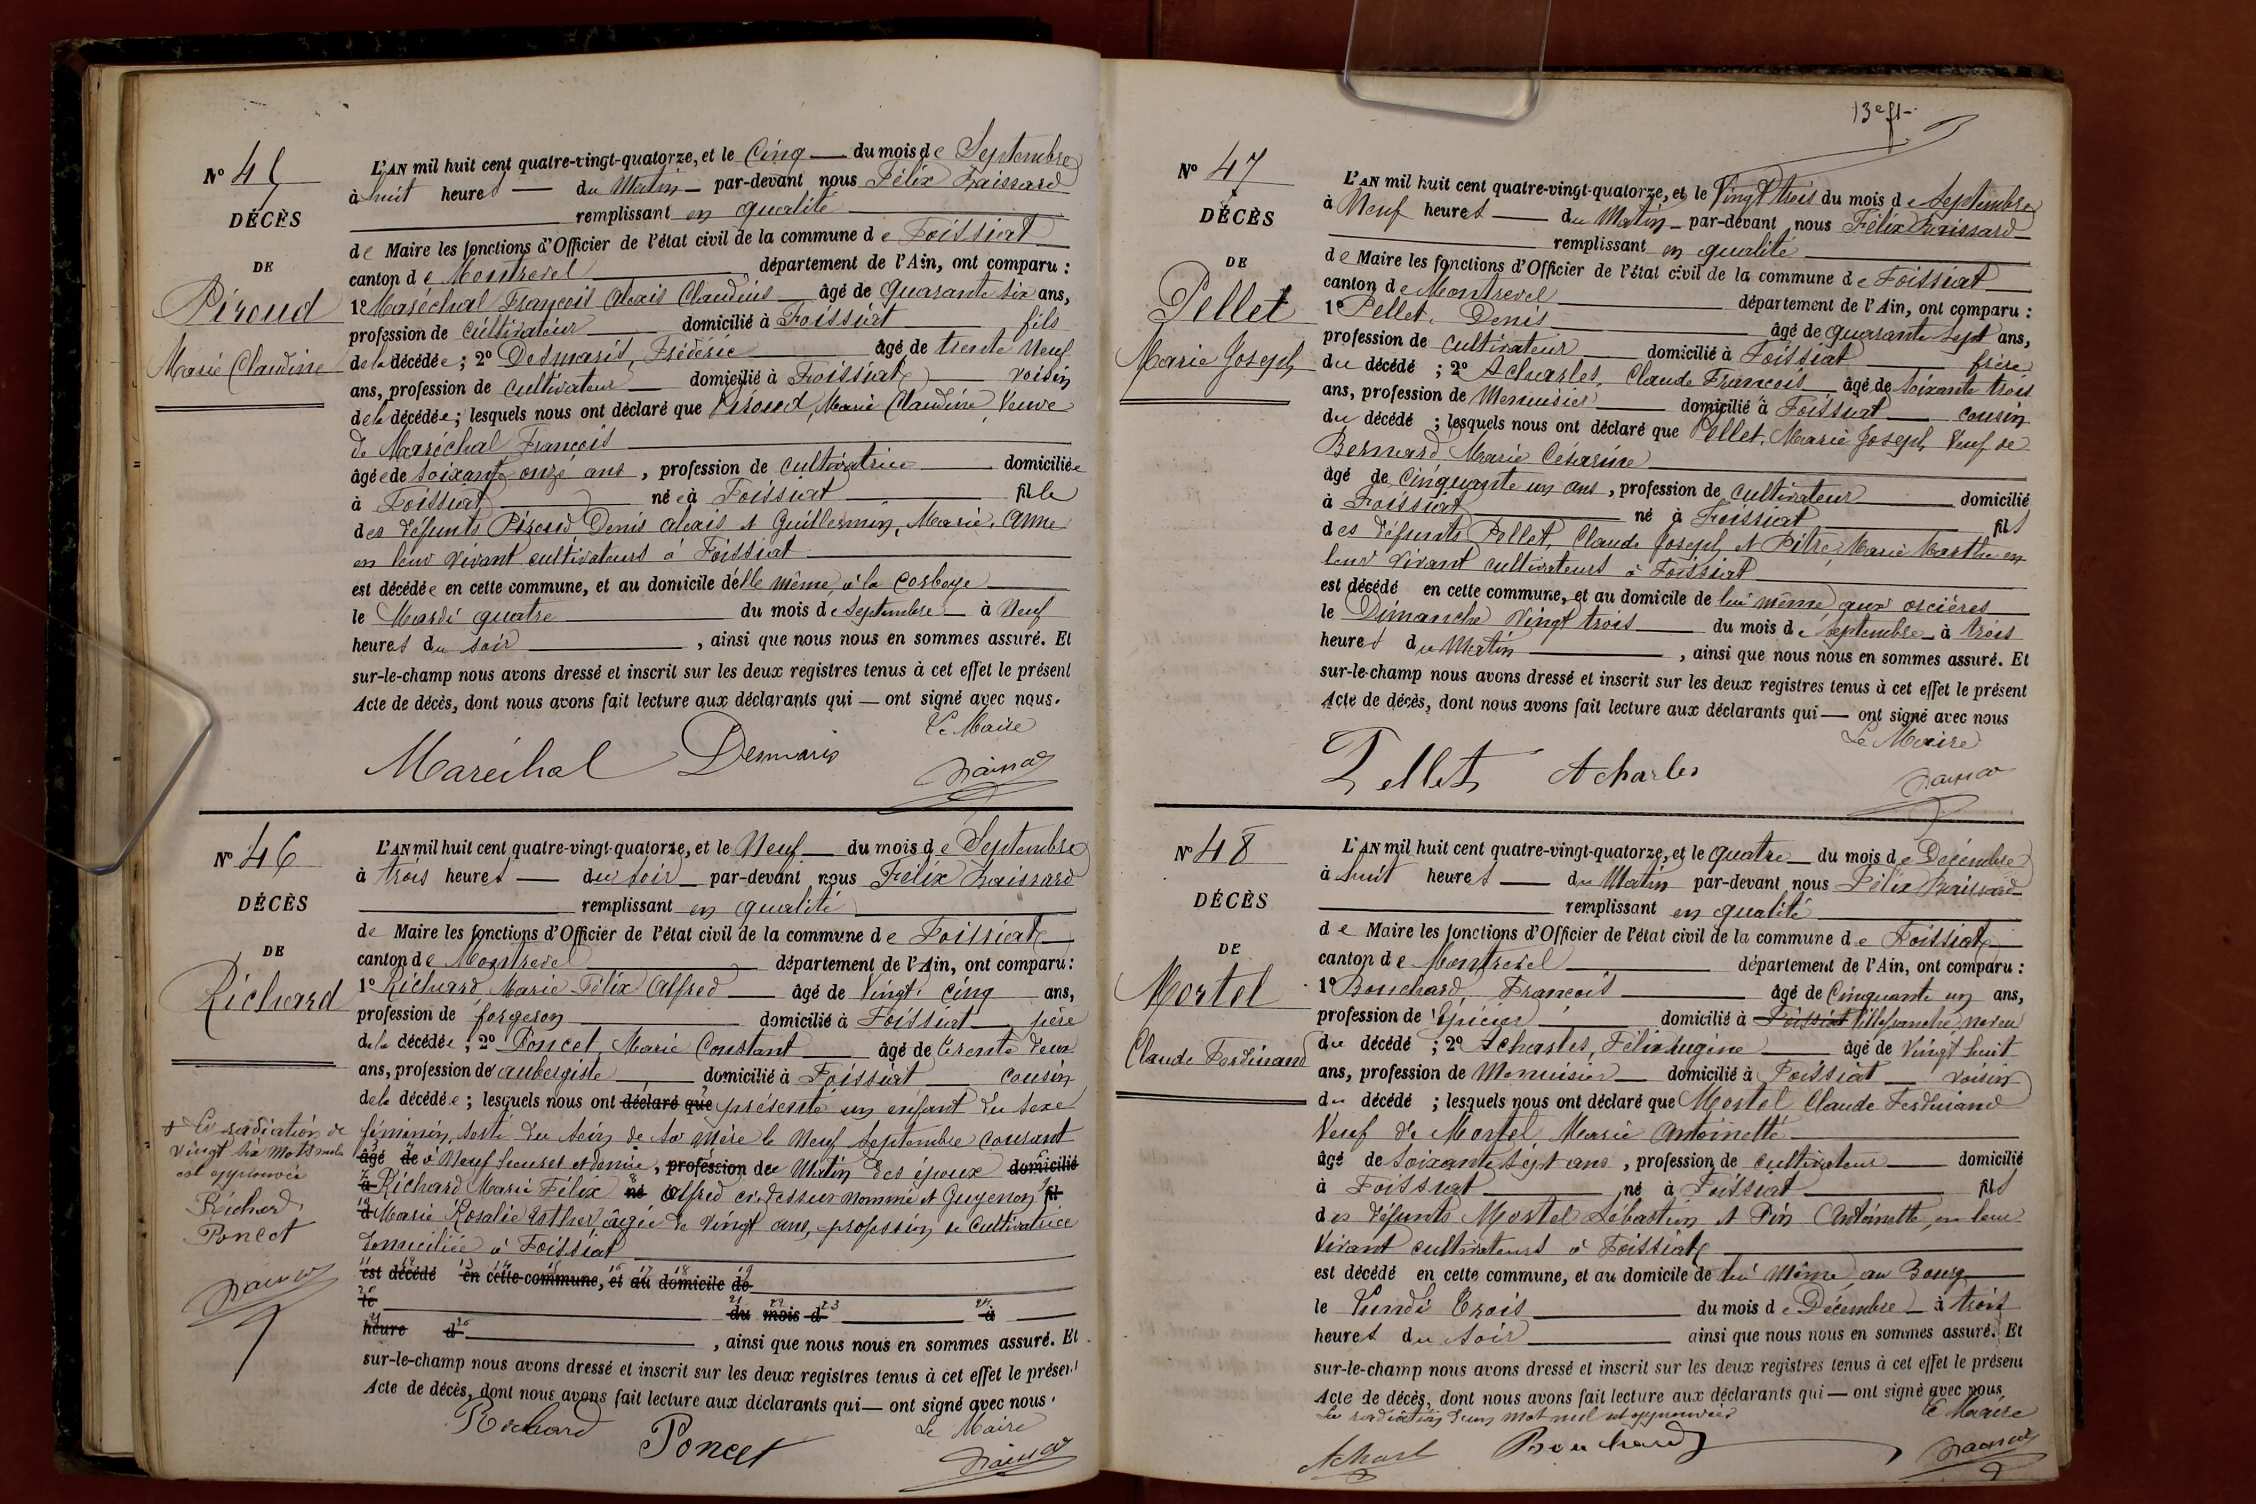 N° 45
DÉCÈS
DE
Piroud
Marie Claudine
L'AN mil huit cent quatre-vingt-quatorze, et le Cinq — du mois de Septembre
à huit heures — du Matin — par-devant nous Félix
remplissant en qualité
de Maire les fonctions d'Officier de l'état civil de la commune de Foissiat
canton de Montrevel département de l'Ain, ont comparu :
1° Maréchal François Alexis Claudius — âgé de quarante six ans,
profession de cultivateur domicilié à Foissiat fils
de la décédée ; 2° Desmaris, Frédéric âgé de trente Neuf
ans, profession de cultivateur — domicilié à Foissiat voisin
de la décédée ; lesquels nous ont déclaré que Piroud, Marie Claudine, Veuve
de Maréchal François
âgée de soixante onze ans, profession de cultivatrice domiciliée
à Foissiat née à Foissiat fille
des défunts Piroud Denis Alexis et Guillermin, Marie, Anne
en leur vivant cultivateurs à Foissiat
est décédée en cette commune, et au domicile d'elle même, à la
le Mardi quatre du mois de Septembre — à Neuf
heures du soir , ainsi que nous nous en sommes assuré. Et
sur-le-champ nous avons dressé et inscrit sur les deux registres tenus à cet effet le présent
Acte de décès, dont nous avons fait lecture aux déclarants qui — ont signé avec nous.
Le Maire
Maréchal Desmaris
N° 46
DÉCÈS
DE
Richard
L'AN mil huit cent quatre-vingt-quatorze, et le Neuf — du mois de Septembre
à trois heures — du soir — par-devant nous Félix
remplissant en qualité
de Maire les fonctions d'Officier de l'état civil de la commune de Foissiat
canton de Montrevel département de l'Ain, ont comparu :
1° Richard Marie Félix Alfred — âgé de Vingt cinq ans,
profession de forgeron domicilié à Foissiat père
de la décédée ; 2° Poncet, Marie Constant âgé de trente deux
ans, profession de aubergiste domicilié à Foissiat cousin
de la décédée ; lesquels nous ont déclaré que présenté un enfant du sexe
féminin, sorti du sein de sa mère le Neuf Septembre courant
âgé de à Neuf heures et demie, profession du Matin des époux domicilié
à Richard Marie Félix né Alfred ci-dessus nommé et Guyenon fil
d Marie Rosalie Esther, âgée de vingt ans, profession de cultivatrice
domiciliée à Foissiat
est décédé en cette commune, et au domicile de
le du mois d à
heure d , ainsi que nous nous en sommes assuré. Et
sur-le-champ nous avons dressé et inscrit sur les deux registres tenus à cet effet le présent
Acte de décès, dont nous avons fait lecture aux déclarants qui — ont signé avec nous.
Le Maire
Richard Poncet
+ La radiation de
vingt six mots nuls
est approuvée
Richard
Poncet
13e ft
N° 47
DÉCÈS
DE
Pellet
Marie Joseph
L'AN mil huit cent quatre-vingt-quatorze, et le Vingt trois du mois de Septembre
à Neuf heures — du Matin — par-devant nous Félix
remplissant en qualité
de Maire les fonctions d'Officier de l'état civil de la commune de Foissiat
canton de Montrevel département de l'Ain, ont comparu :
1° Pellet, Denis âgé de quarante sept ans,
profession de cultivateur domicilié à Foissiat frère
du décédé ; 2° Acharles, Claude François — âgé de soixante trois
ans, profession de Menuisier domicilié à Foissiat cousin
du décédé ; lesquels nous ont déclaré que Pellet, Marie Joseph, Veuf de
Bernard Marie Césarine
âgé de cinquante un ans, profession de cultivateur domicilié
à Foissiat né à Foissiat fils
des défunts Pellet, Claude Joseph et Pitre, Marie Marthe en
leur vivant cultivateurs à Foissiat
est décédé en cette commune, et au domicile de lui même aux oscières
le Dimanche Vingt trois du mois de Septembre à trois
heures du Matin , ainsi que nous nous en sommes assuré. Et
sur-le-champ nous avons dressé et inscrit sur les deux registres tenus à cet effet le présent
Acte de décès, dont nous avons fait lecture aux déclarants qui — ont signé avec nous
Le Maire
Pellet Acharles
N° 48
DÉCÈS
DE
Mortel
Claude Ferdinand
L'AN mil huit cent quatre-vingt-quatorze, et le quatre — du mois de Décembre
à huit heures — du Matin par-devant nous Félix
remplissant en qualité
de Maire les fonctions d'Officier de l'état civil de la commune de Foissiat
canton de Montrevel département de l'Ain, ont comparu :
1° Bouchard, François âgé de Cinquante un ans,
profession de Épicier domicilié à Foissiat Villefranche neveu
du décédé ; 2° Acharles, Félix Eugène âgé de Vingt huit
ans, profession de Menuisier — domicilié à Foissiat — voisin
du décédé ; lesquels nous ont déclaré que Mortel Claude Ferdinand
Veuf de Mortel Marie Antoinette
âgé de soixante sept ans, profession de cultivateur domicilié
à Foissiat né à Foissiat fils
des défunts Mortel Sébastien et Pin Antoinette, en leur
vivant cultivateurs à Foissiat
est décédé en cette commune, et au domicile de lui même au Bourg
le Lundi Trois du mois de Décembre — à trois
heures du soir ainsi que nous nous en sommes assuré. Et
sur-le-champ nous avons dressé et inscrit sur les deux registres tenus à cet effet le présent
Acte de décès, dont nous avons fait lecture aux déclarants qui — ont signé avec nous
La radiation d'un mot nul est approuvée
Le Maire
Bouchard